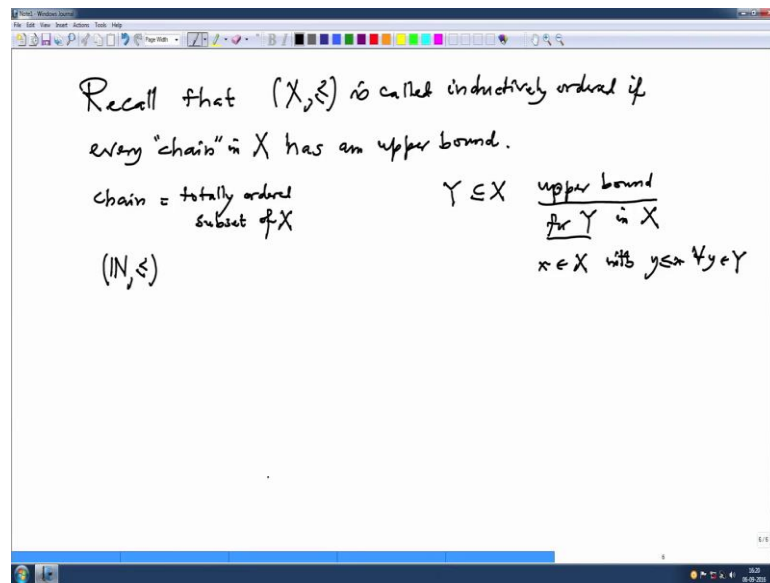 Note1 - Windows Journal
File Edit View Insert Actions Tools Help
Page Width
B I
Recall that (X,≤) is called inductively ordered if
every "chain" in X has an upper bound.
chain = totally ordered
subset of X
Y ⊆ X upper bound
for Y in X
x ∈ X with y≤x ∀y∈Y
(ℕ,≤)
6/6
6
16:20
06-09-2019